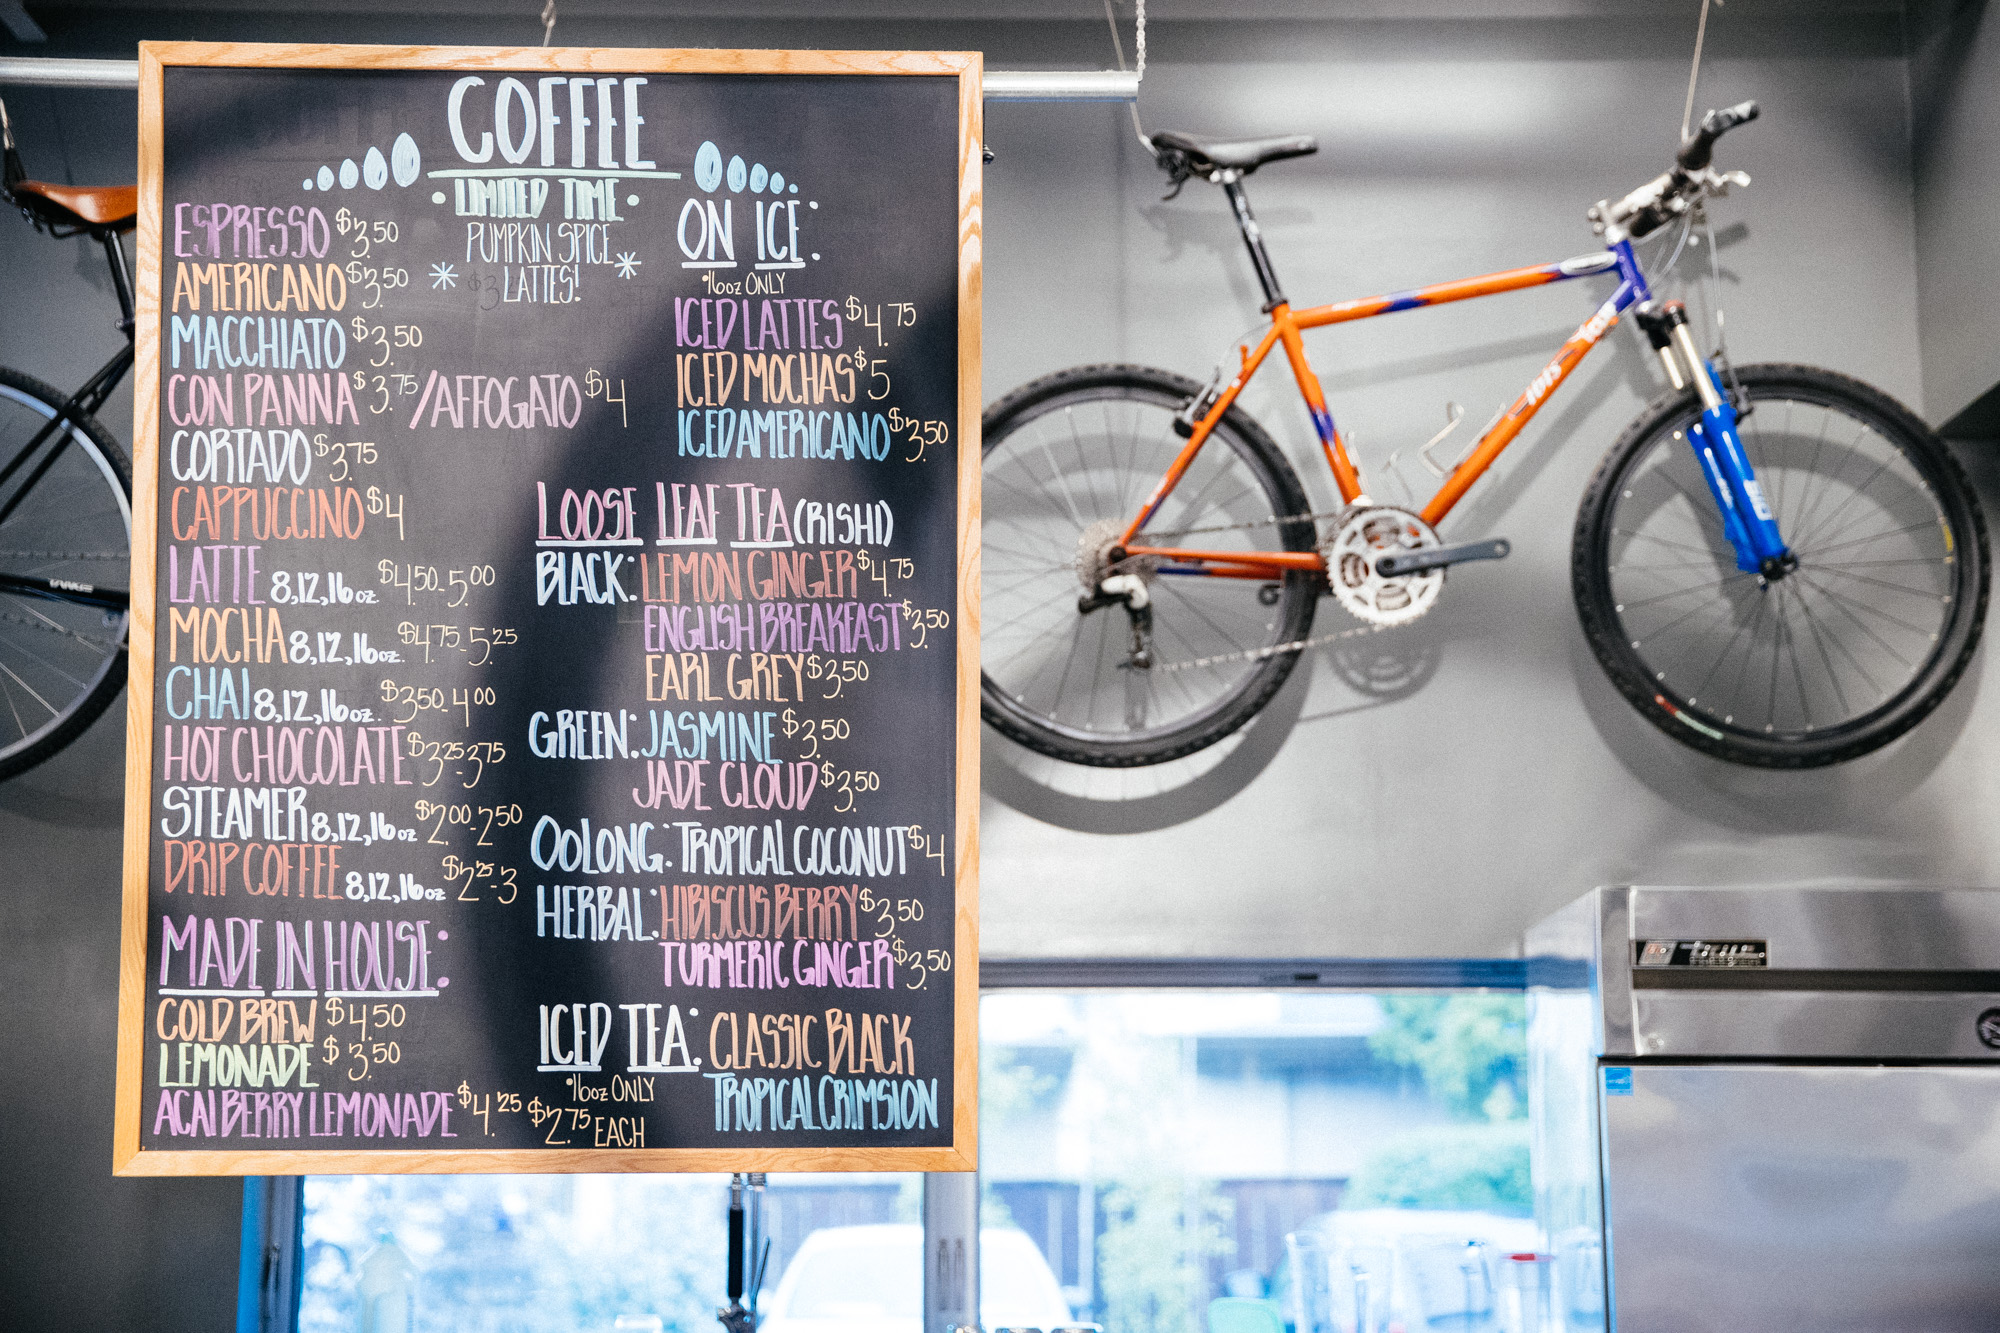 COFFEE
• LIMITED TIME •
PUMPKIN SPICE
LATTES!
ESPRESSO $3.50
AMERICANO $3.50
MACCHIATO $3.50
CON PANNA $3.75 / AFFOGATO $4
CORTADO $3.75
CAPPUCCINO $4
LATTE 8,12,16oz. $4.50-5.00
MOCHA 8,12,16oz. $4.75-5.25
CHAI 8,12,16oz. $3.50-4.00
HOT CHOCOLATE $3.25-3.75
STEAMER 8,12,16oz $2.00-2.50
DRIP COFFEE 8,12,16oz $2.25-3
MADE IN HOUSE:
COLD BREW $4.50
LEMONADE $3.50
ACAI BERRY LEMONADE $4.25
ON ICE:
•16oz ONLY
ICED LATTES $4.75
ICED MOCHAS $5
ICED AMERICANO $3.50
LOOSE LEAF TEA (RISHI)
BLACK: LEMON GINGER $4.75
ENGLISH BREAKFAST $3.50
EARL GREY $3.50
GREEN: JASMINE $3.50
JADE CLOUD $3.50
OOLONG: TROPICAL COCONUT $4
HERBAL: HIBISCUS BERRY $3.50
TURMERIC GINGER $3.50
ICED TEA: CLASSIC BLACK
•16oz ONLY TROPICAL CRIMSION
$2.75 EACH
ibis